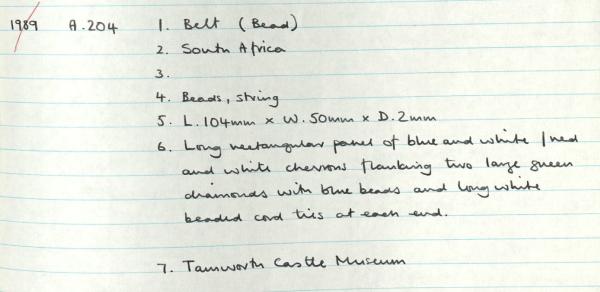 1989 A.204 1. Belt (Bead)
2. South Africa
3.
4. Beads, string
5. L.104mm x W.50mm x D.2mm
6. Long rectangular panel of blue and white / red
and white chevrons flanking two large green
diamonds with blue beads and long white
beaded cord ties at each end.
7. Tamworth Castle Museum